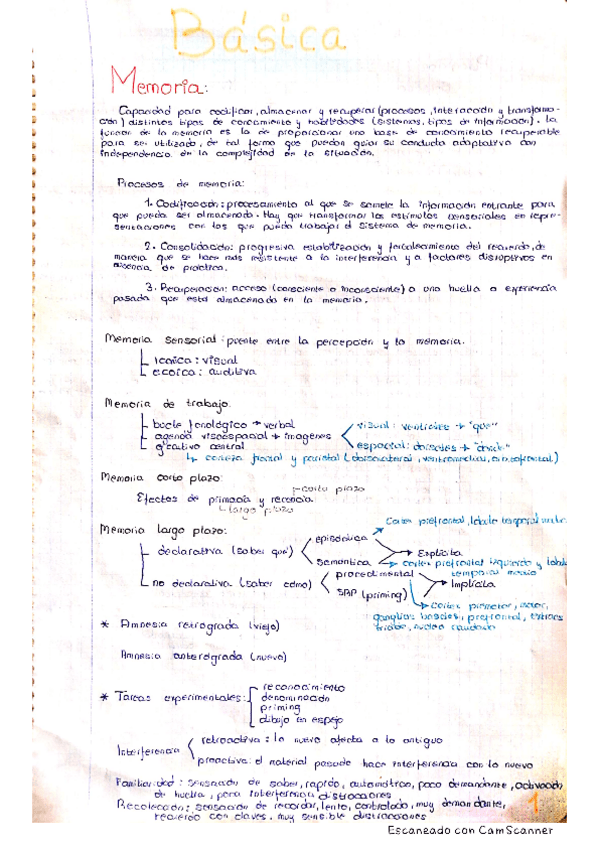 Básica
Memoria:
Capacidad para codificar, almacenar y recuperar (procesos, interacción y transforma-
ción) distintos tipos de conocimiento y habilidades (sistemas, tipos de información). La
función de la memoria es la de proporcionar una base de conocimiento recuperable
para ser utilizado, de tal forma que puedan guiar su conducta adaptativa con
independencia de la complejidad en la situación.
Procesos de memoria:
1. Codificación: procesamiento al que se somete la información entrante para
que pueda ser almacenado. Hay que transformar los estímulos sensoriales en repre-
sentaciones con las que pueda trabajar el sistema de memoria.
2. Consolidación: progresiva estabilización y fortalecimiento del recuerdo, de
manera que se hace más resistente a la interferencia y a factores disruptivos en
ausencia de práctica.
3. Recuperación: acceso (consciente o inconsciente) a una huella o experiencia
pasada que está almacenada en la memoria.
Memoria sensorial: puente entre la percepción y la memoria.
icónica: visual
ecoica: auditiva
Memoria de trabajo.
bucle fonológico → verbal
agenda visoespacial → imágenes
visual: ventrales → "qué"
espacial: dorsales → "donde"
ejecutivo central
↳ corteza frontal y parietal (dorsolateral, ventromedial, orbitofrontal)
Memoria corto plazo:
corto plazo
Efectos de primacía y recencia.
largo plazo
Memoria largo plazo:
Cortex prefrontal, lóbulo temporal medio
declarativa (saber qué)
episódica
semántica
Explícita
cortex prefrontal izquierdo y lóbulo
temporal medio
no declarativa (saber cómo)
procedimental
SRP (priming)
Implícita
cortex premotor, motor,
ganglios basales, prefrontal,
núcleo caudado
* Amnesia retrograda (viejo)
Amnesia anterógrada (nuevo)
* Tareas experimentales:
reconocimiento
denominación
priming
dibujo en espejo
Interferencia
retroactiva: lo nuevo afecta a lo antiguo
proactiva: el material pasado hace interferencia con lo nuevo
Familiaridad: sensación de saber, rápido, automático, poco demandante, activación
de huella, poca interferencia distractores
Recolección: sensación de recordar, lento, controlado, muy demandante,
recuerdo con claves, muy sensible distracciones
1
Escaneado con CamScanner